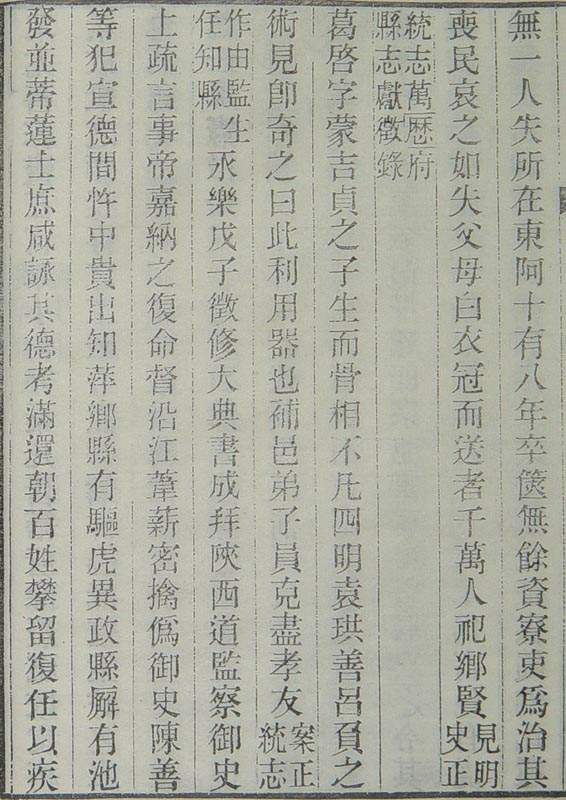 無一人失所在東阿十有八年卒篋無餘資寮吏爲治其
喪民哀之如失父母白衣冠而送者千萬人祀鄉賢見明史正
統志萬歷府縣志獻徵錄
葛啓字蒙吉貞之子生而骨相不凡四明袁珙善呂負之
術見卽奇之曰此利用器也補邑弟子員克盡孝友案正統志
作由監生任知縣永樂戊子徵修大典書成拜陝西道監察御史
上疏言事帝嘉納之復命督沿江葦薪密擒僞御史陳善
等犯宣德間忤中貴出知萍鄉縣有驅虎異政縣廨有池
發並蒂蓮士庶咸詠其德考滿還朝百姓攀留復任以疾